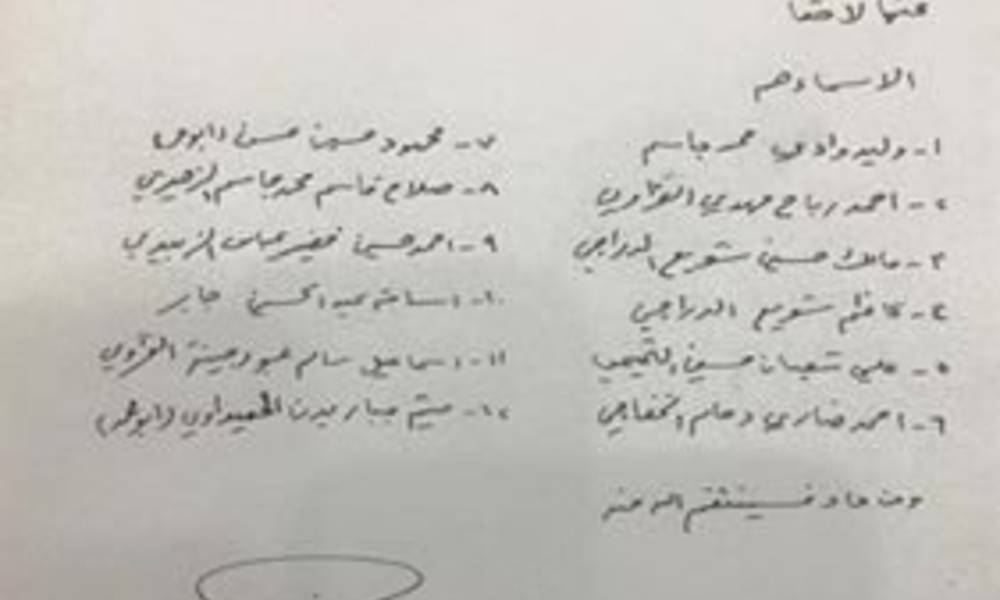 عنها لاحقا
الاسماء هم
١- وليد وادي حمد جاسم
٢- احمد رباح مهدي الغزاوي
٣- مالك حسين شويع الدراجي
٤- كاظم شويع الدراجي
٥- علي شعبان حسين التميمي
٦- احمد ضاري دحام الخفاجي
٧- محمود حسين حسن
٨- صلاح قاسم محمد جاسم الزهيري
٩- احمد حسين خضير عباس الزبيدي
١٠- اسامة عبد الحسن جابر
١١- اسماعيل سالم عبود الغزوي
١٢- ميثم جبار بدن
ومن عاد فسينتقم الله منه